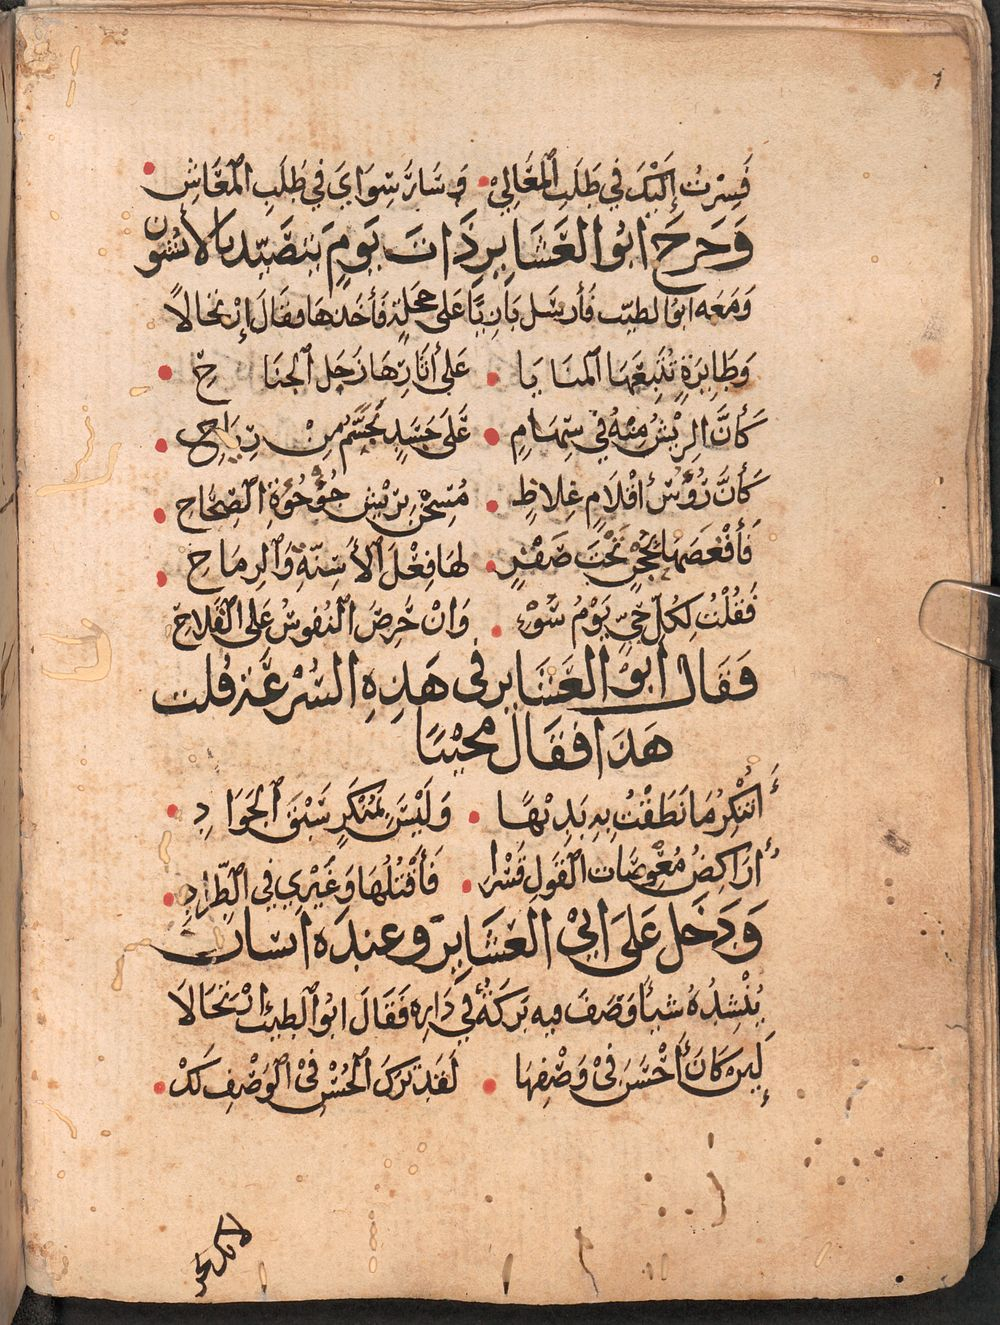 فَسِرْتُ إِلَيْكَ فِي طَلَبِ الْمَعَالِيْ وَسَارَ سِوَايَ فِي طَلَبِ الْمَعَاشِ
وَخَرَجَ ابُو الْعَشَايِرِ ذَاتَ يَوْمٍ يتصَيّد بالأشون
وَمَعَه ابُو الطيّب فَأَرسَل بَازِيًا عَلى حَجَلَةٍ فَأَخَذهَا وفقَالَ إرْتِجَالاً
وَطَايِرَةٍ تَتَبَّعَهَا الْمنَايَا عَلى أثَارِهَا زَجِل الْجنَاحِ
كَأَنَّ الرِيْشَ مِنْهُ فِي سِهَامٍ عَلَى جَسَدٍ تَجَسَّمَ مِنْ رِيَاحِ
كَأَنَّ رُؤُسَ أَقْلَامٍ غِلاظٍ مُسِحْنَ بِرِيْشِ جُؤْجُؤِهِ الصِّحَاحِ
فَأَقْعَصَهَا بِحُجْنٍ تَحْتَ صَفْرٍ لهَا فِعْلُ الأَسِنَّةِ وَالرِمَاحِ
فَقُلْتُ لِكُلِّ حَيٍّ يَوْمُ سُوْءٍ وَانْ حَرِصَ النُفوسُ عَلى الفَلاحِ
فَقَالَ ابُو الْعَشَايِر فى هَذِهِ السُّرْعَة قُلت
هَذَا فقَالَ مجيْبًا
أَتنْكِرُ مَا نَطَقْتُ بِهِ بَدِيْهًا وَلَيْسَ بمُنْكَرٍ سَبْقُ الجَوَادِ
أُرَاكِضُ مُعْوِصَات القَولِ قَسْرا فَأَقْتُلُهَا وَغَيْرِي فِي الطِّرَادِ
وَدَخَلَ عَلَى ابِيْ العَشَايِرِ وعندَه انسَان
يُنْشِدُهُ شيأً وَصَفَ فيه بَركَةً فِي دَارِه فَقَالَ ابُو الطيّب ارْتجَالاَ
لَئِن كَانَ أَحْسَنَ فِيْ وَصْفِهَا لَقَد تَرَكَ الْحُسْنَ فِيْ الْوَصْفِ لَكْ
لانك بحر